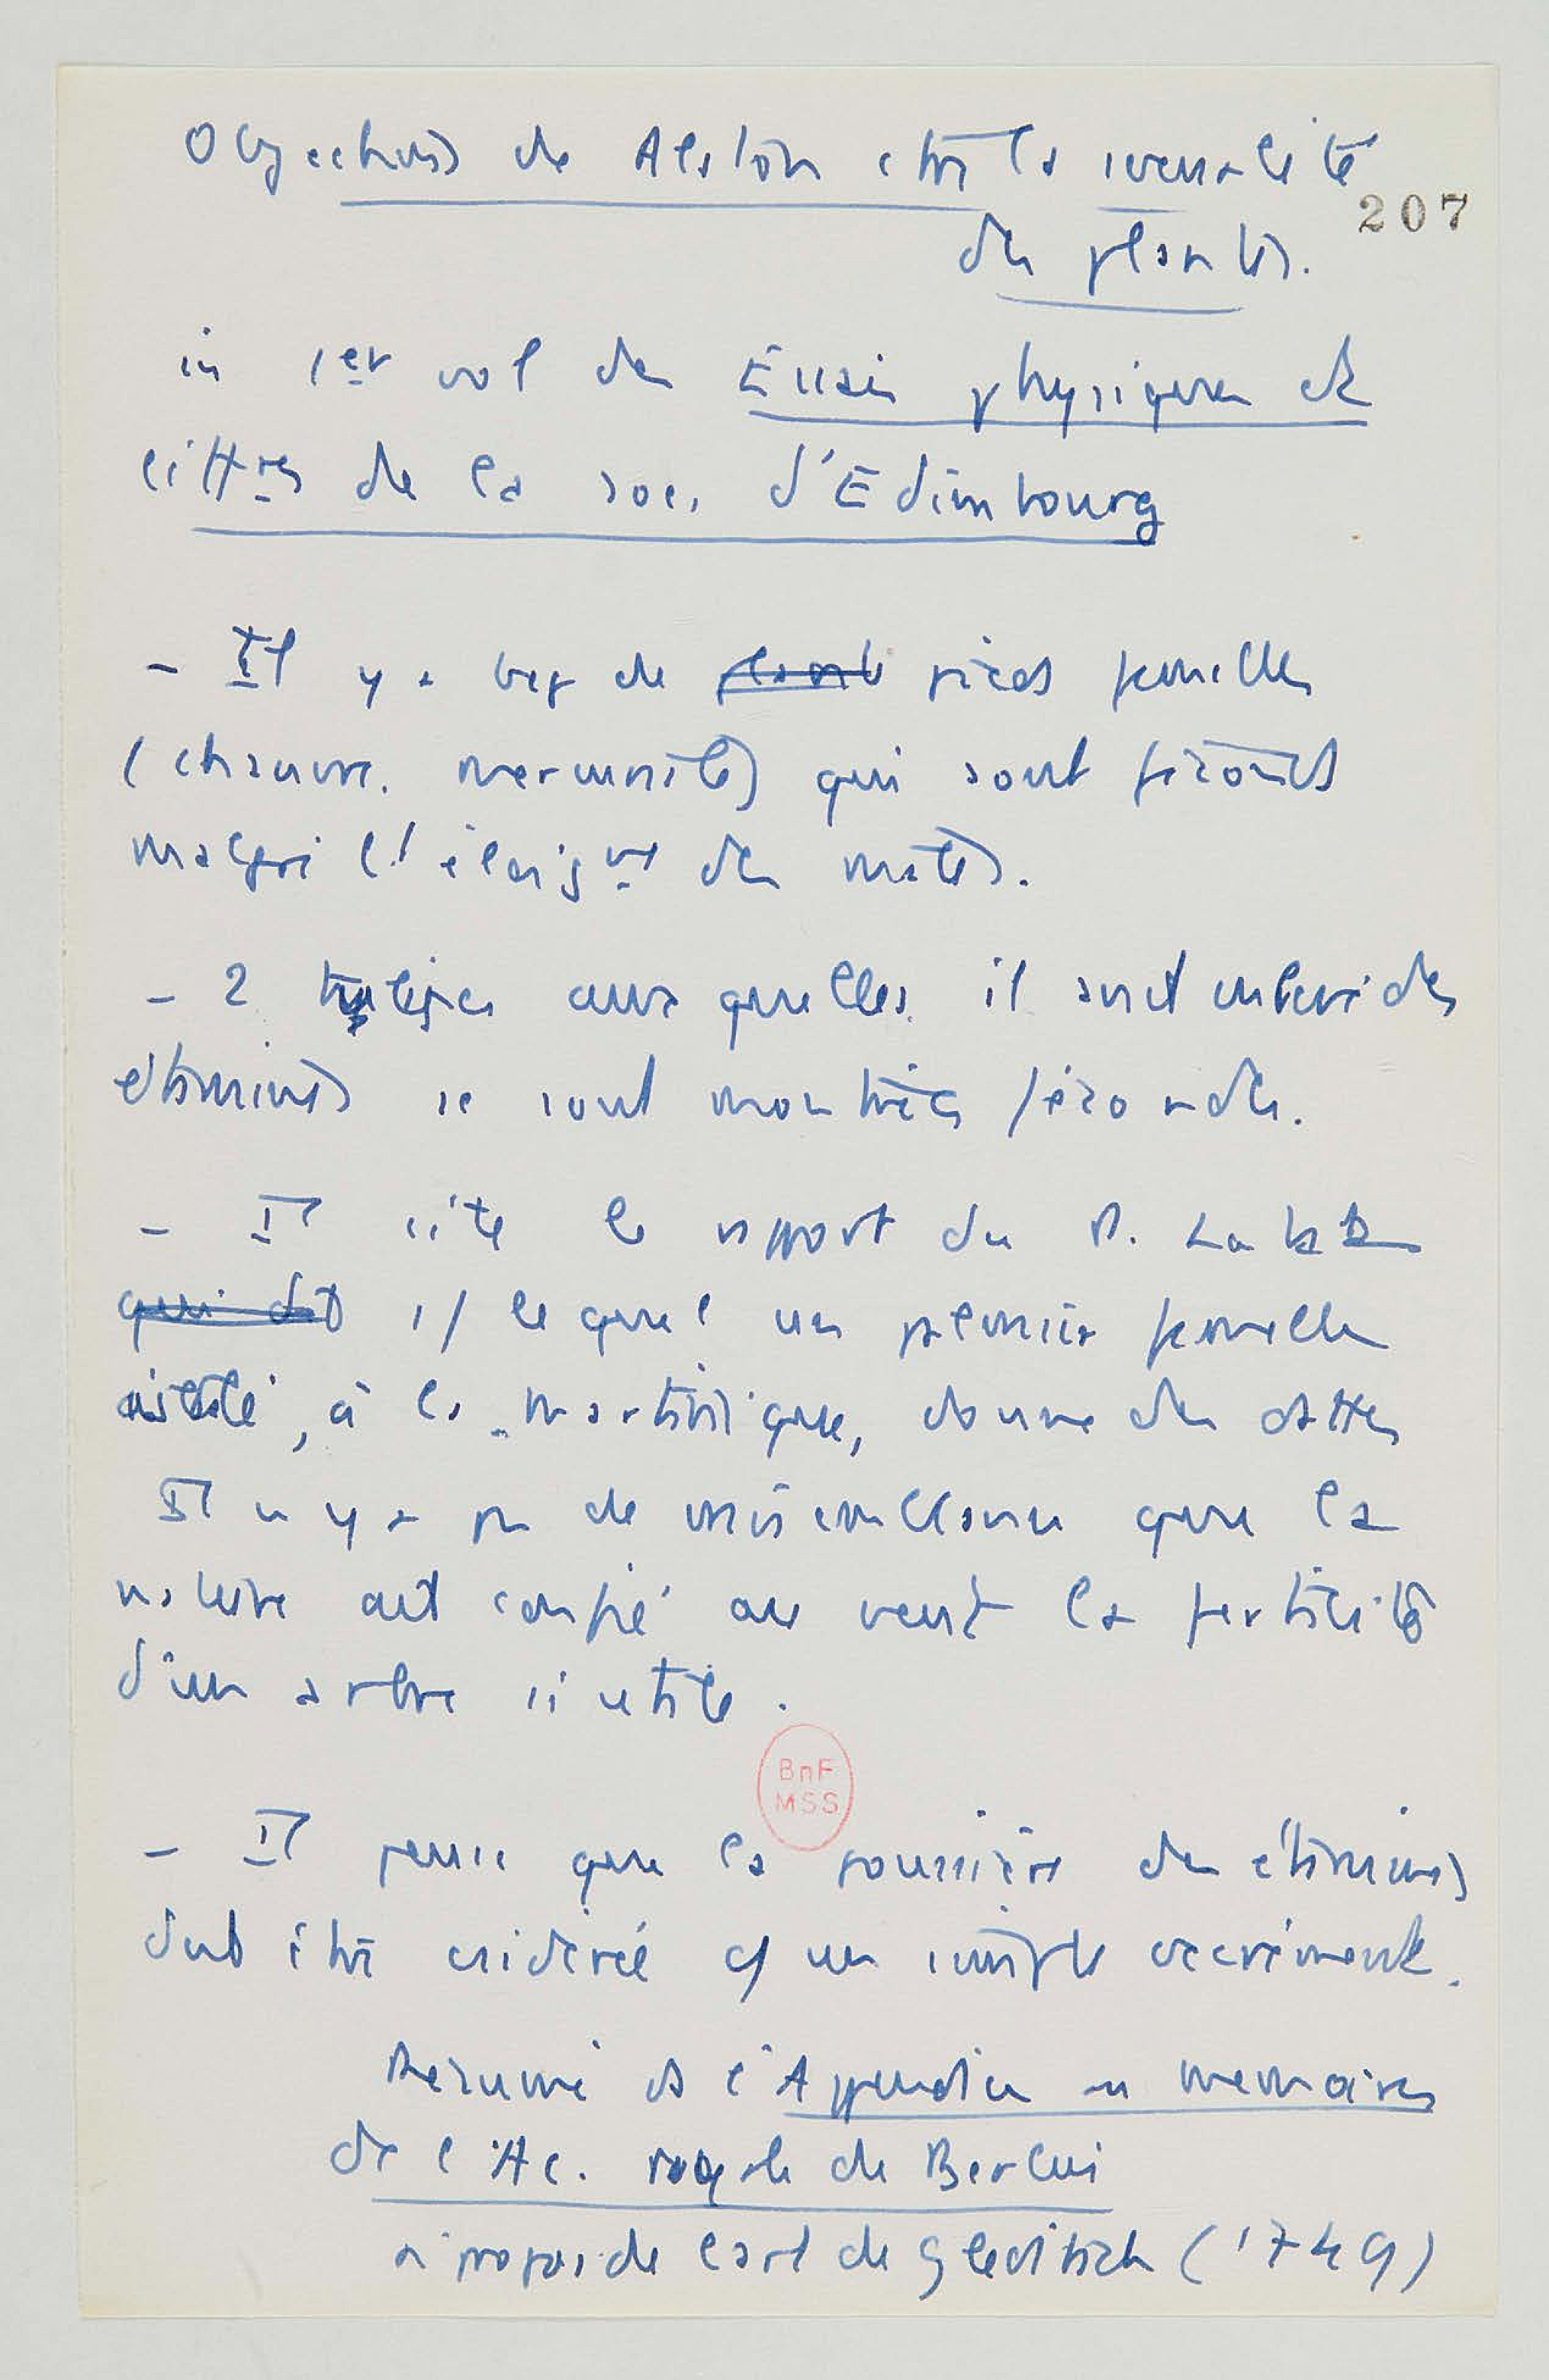 Objections de Alston ctre la sexualité
207
des plantes.
in 1er vol des Essais physiques et
littres de la soc. d'Edimbourg
- Il y a bcp de plante pieds femelles
(chanvre. mercuriale) qui sont féconds
malgré l'éloigt des mâles.
- 2 tulipes auxquelles il avait enlevé des
étamines se sont montrées fécondes.
- Il cite le rapport du P. Labat
qui dit s/ lequel un palmier femelle
isolé, à la Martinique, donne des dattes
Il n'y a pas de vraisemblance que la
nature ait confié au vent la fertilité
d'un arbre si utile.
BnF
MSS
- Il pense que la poussière des étamines
doit être csidérée c/ un simple excrément.
Résumé ds l'Appendice aux memoires
de l'Ac. royale de Berlin
à propos de l'art de Gleditsch (1749)